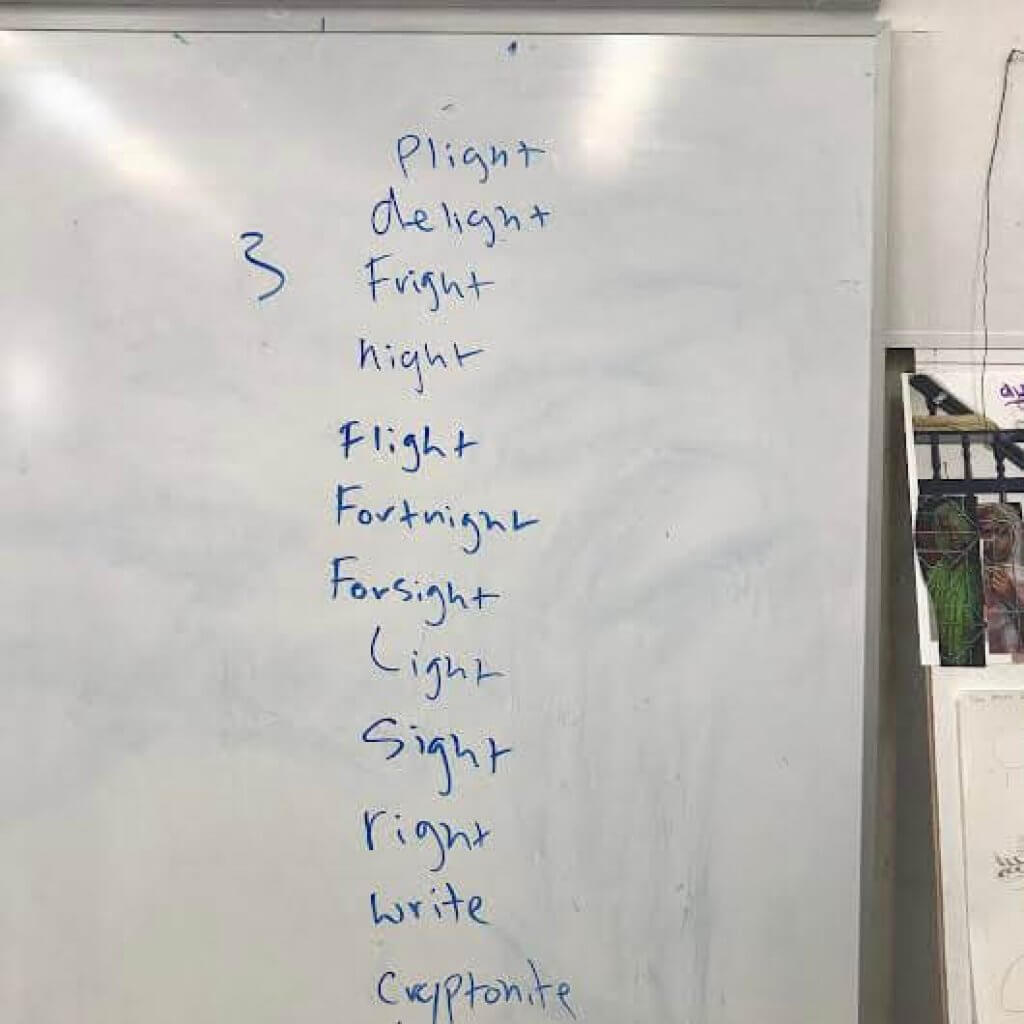 Plight
delight
3
Fright
night
Flight
Fortnight
Forsight
Light
Sight
right
write
Cryptonite